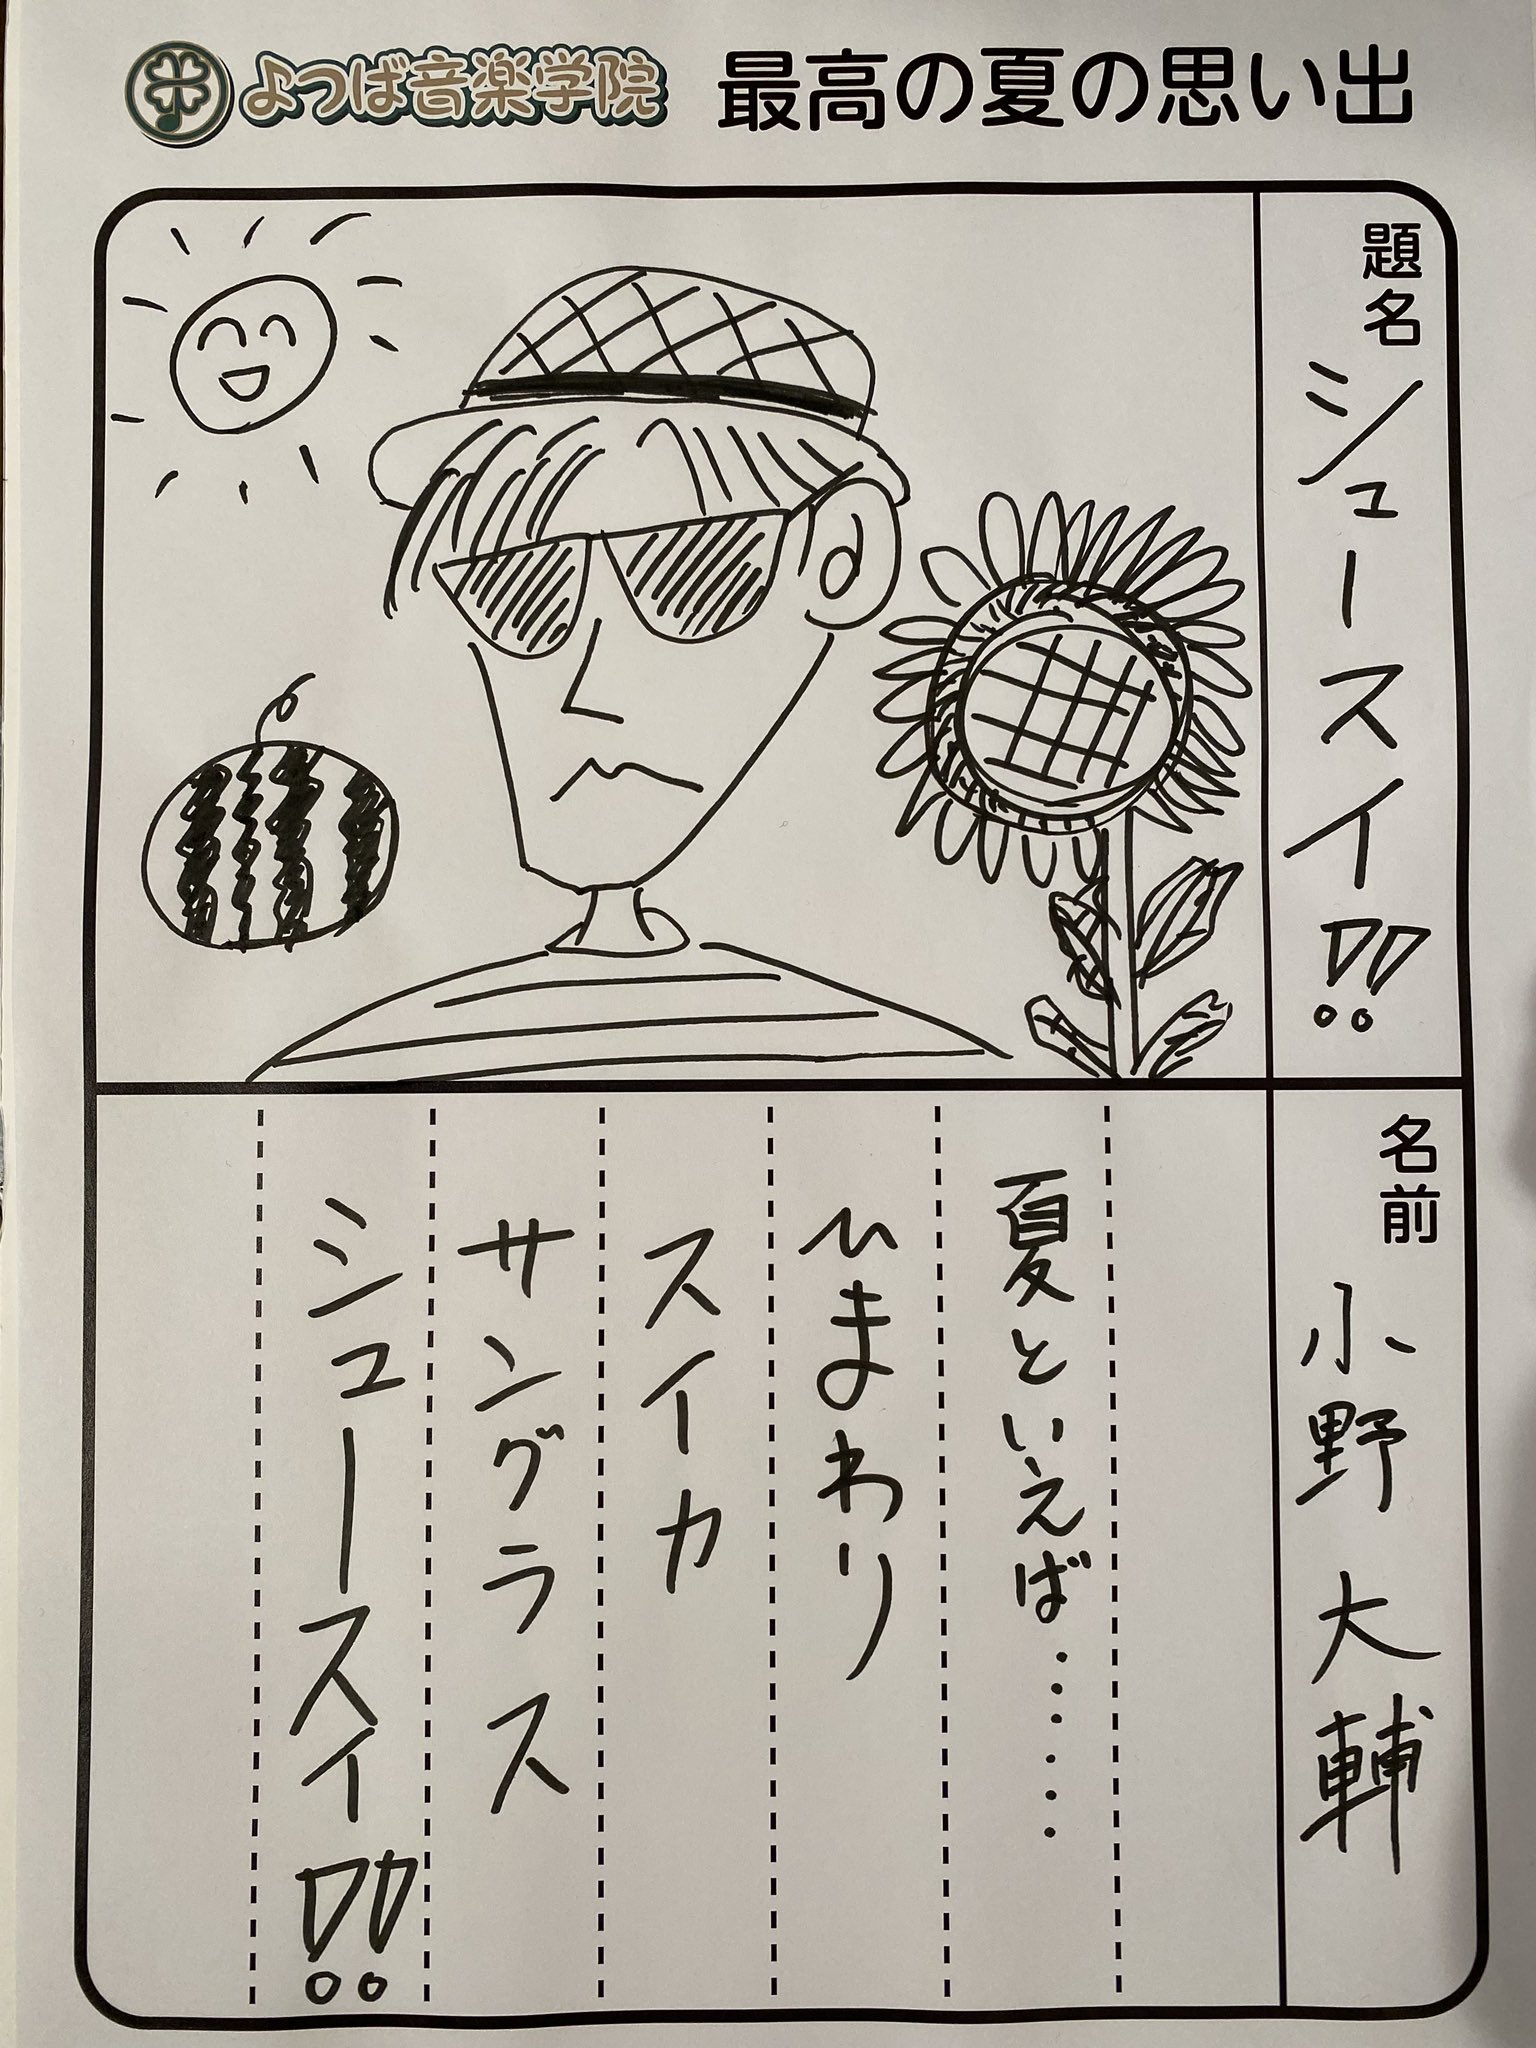 よつば音楽学院 最高の夏の思い出
題名 シュースイ!!
名前 小野 大輔
夏といえば………
ひまわり
スイカ
サングラス
シュースイ!!